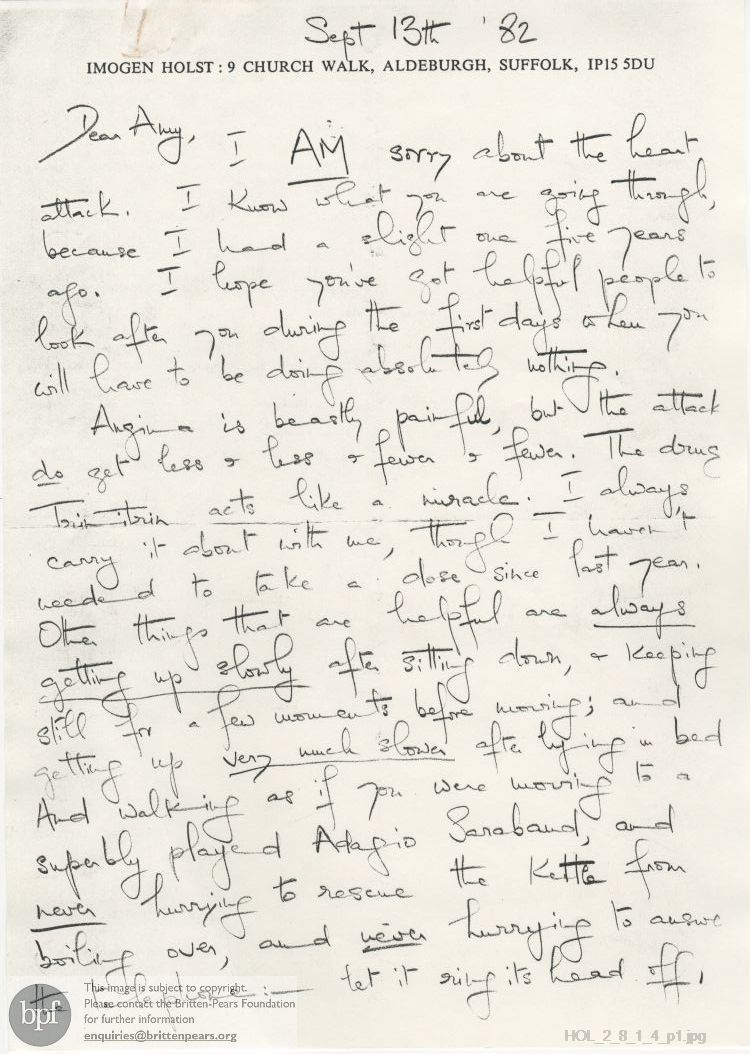 Sept 13th '82
IMOGEN HOLST : 9 CHURCH WALK, ALDEBURGH, SUFFOLK, IP15 5DU
Dear Amy, I AM sorry about the heart
attack. I know what you are going through,
because I had a slight one five years
ago. I hope you've got helpful people to
look after you during the first days when you
will have to be doing absolutely nothing.
Angina is beastly painful, but the attack
do get less & less & fewer & fewer. The drug
Trinitrin acts like a miracle. I always
carry it about with me, though I haven't
needed to take a dose since last year.
Other things that are helpful are always
getting up slowly after sitting down, & keeping
still for a few moments before moving; and
getting up very much slower after lying in bed
And walking as if you were moving to a
superbly played Adagio Saraband, and
never hurrying to rescue the kettle from
boiling over, and never hurrying to answer
the telephone :— let it ring its head off,
bpf
This image is subject to copyright.
Please contact the Britten-Pears Foundation
for further information
enquiries@brittenpears.org
HOL_2_8_1_4_p1.jpg